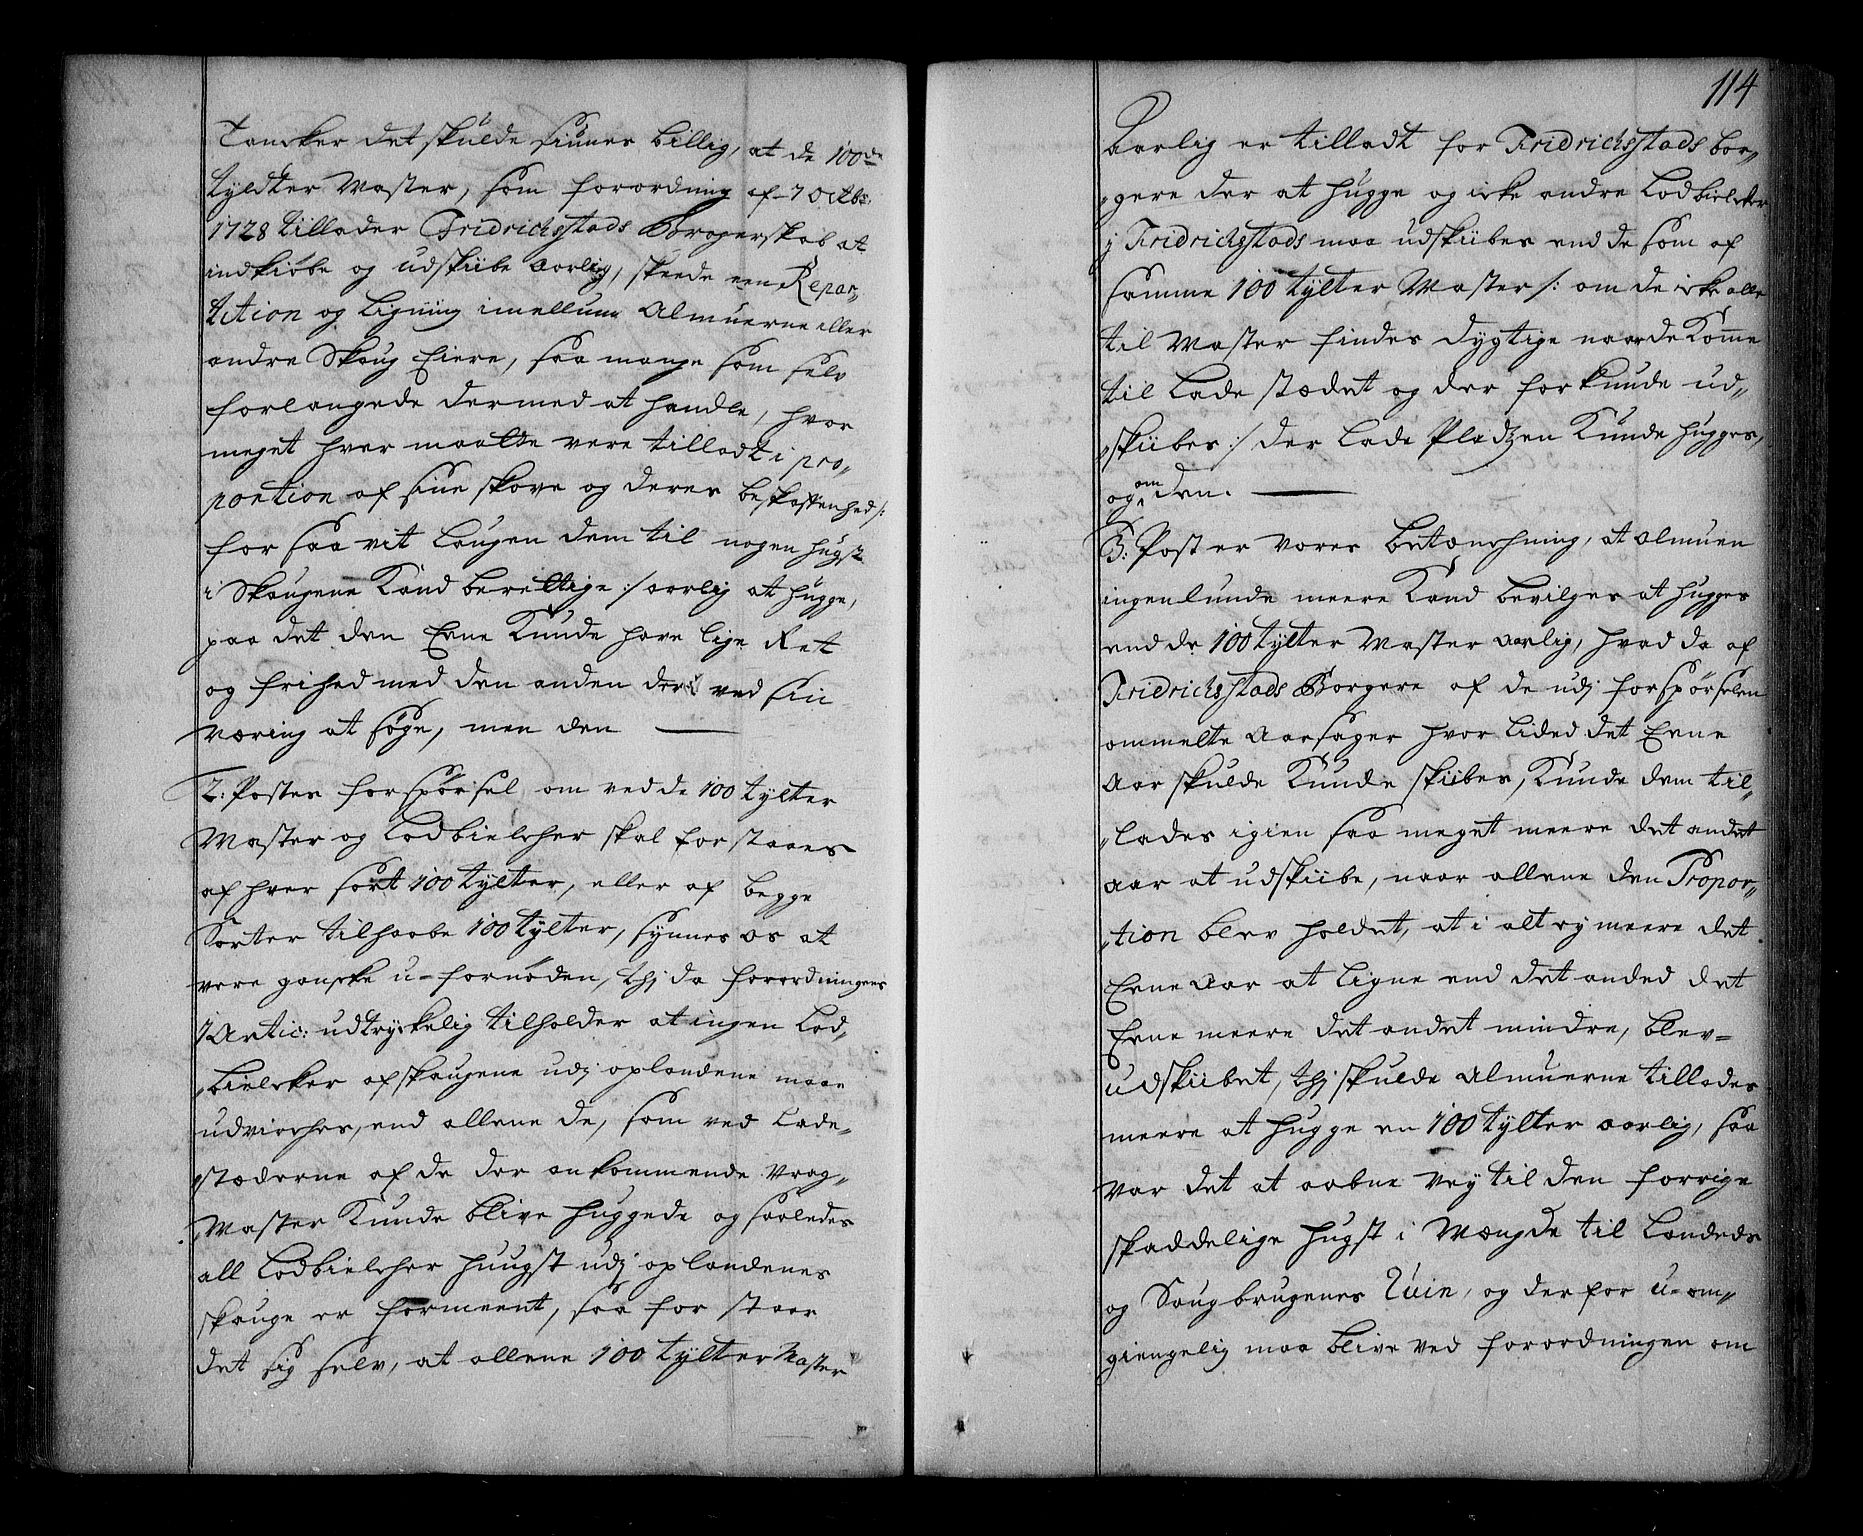 Tancker det skulde siunes billig, at de 100de
tyldter Master, som forordning af 7 Octbr:
1728 tillader Fridrichsstads Borgerskab at
indkiøbe og udskiibe aarlig, skeede een Repar„
tition og Ligning imellum Almuerne eller
andre Skoug Eiere, saa mange som selv
forlangede dermed at handle, hvor
meget hver maatte vere tilladt i pro„
portion af siine skove og deres beskaffenhed /:
for saa vit Lougen dem til nogen hugst
i Skougene Kand berettige :/ aarlig at hugge,
paa det den Eene Kunde have lige Ret
og frihed med den anden der ved siin
Næring at søge, men den
2: Postes forspørsel om ved de 100 tylter
Master og Lodbielcher skal forstaaes
af hver sort 100 tylter, eller af begge
Sorter tilhaabe 100 tylter, synnes os at
vere gandske u-fornøden, thj da forordningens
7 Artic: udtryckelig tilholder at ingen Lod„
„Bielcker af skougene udj oplandene maae
udvirches, end allene de, som ved Lade„
„stæderne af de der ankommende Vrag„
„Master Kunde blive huggede og saaledes
all Lodbielcher huugst udj oplandenes
skouge er forment, saa forstaar
det sig selv, at allene 100 tylter Master
114
Aarlig er tilladt for Fridrichsstads bor„
„gere der at hugge og icke andre Lodbielcker
j Fridrichsstads maa udskiibes end de som af
samme 100 tylter Master /: om de icke alle
til Master findes dygtige naar de Komme
til Lade stædet og der for kunde ud„
„skiibes :/ der Lade Pladzen Kunde hugges,
og om den.
3: Post er vores betænchning, at almuen
ingenlunde meere Kand bevilges at hugges
end de 100 tylter Master aarlig, hvad da af
Fridrichsstads Borgere af de udj forspørselen
ommelte Aarsager hvor Lided det Eene
Aar skulde Kunde skiibes, Kunde dem til„
„lades igien saa meget meere det andet
aar at udskiibe, naar allene den Propor„
„tion blev holdet, at i alt ey meere det
Eene Aar at Ligne end det anded det
Eene meere det andet mindre, blev
udskiibet, thj skulde Almuerne tillades
meere at hugge en 100 tylter aarlig, saa
var det at aabne vey til den forrige
skaddelige hugst i Mængde til Landeds
og Saugbrugenes Ruin, og derfor u-om„
giengelig maa blive ved forordningen om